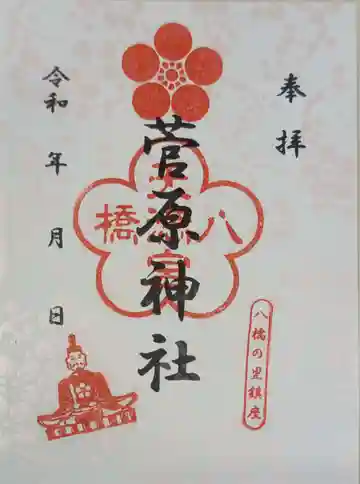 奉拝
菅原神社
八橋
八橋の里鎮座
令和 年 月 日